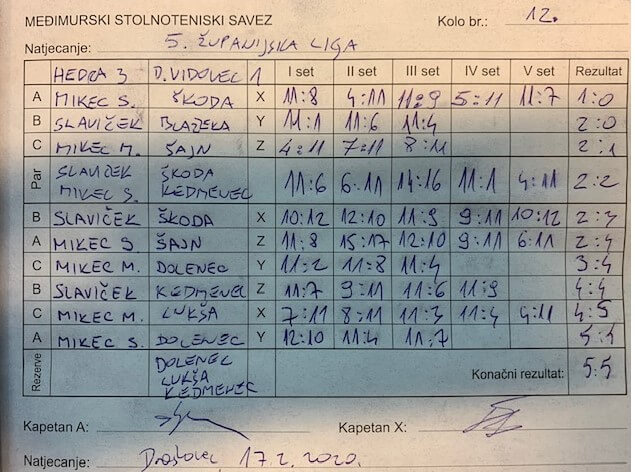 MEĐIMURSKI STOLNOTENISKI SAVEZ Kolo br.: 12.
Natjecanje: 5. ŽUPANIJSKA LIGA
HEDRA 3 D.VIDOVEC 1 I set II set III set IV set V set Rezultat
A MIKEC S. ŠKODA X 11:8 4:11 11:9 5:11 11:7 1:0
B SLAVIČEK BLAŽEKA Y 11:1 11:6 11:4 2:0
C MIKEC M. ŠAJN Z 4:11 7:11 8:11 2:1
Par SLAVIČEK MIKEC S. ŠKODA KEDMENEC 11:6 6:11 14:16 11:1 4:11 2:2
B SLAVIČEK ŠKODA X 10:12 12:10 11:9 9:11 10:12 2:3
A MIKEC S ŠAJN Z 11:8 15:17 12:10 9:11 6:11 2:4
C MIKEC M. DOLENEC Y 11:2 11:8 11:4 3:4
B SLAVIČEK KEDMENEC Z 11:7 9:11 11:6 11:9 4:4
C MIKEC M. LUKŠA X 7:11 8:11 11:3 11:4 9:11 4:5
A MIKEC S. DOLENEC Y 12:10 11:4 11:7 5:5
Rezerve DOLENEC LUKŠA KEDMENEC Konačni rezultat: 5:5
Kapetan A: Kapetan X:
Natjecanje: 17.2.2020.